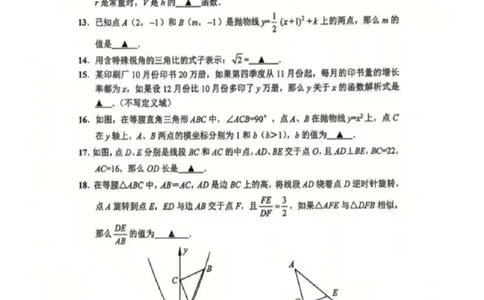 r是常量时，V是h的 ▲ 函数．
13．已知点A（2，-1）和B（m，-1）是抛物线y=1/2(x+1)²+k上的两点，那么m的
值是 ▲ ．
14．用含特殊锐角的三角比的式子表示：√2= ▲ ．
15．某印刷厂10月份印书20万册，如果第四季度从11月份起，每月的印书量的增长
率都为x，如果设12月份比10月份多印了y万册，那么y关于x的函数解析式是
▲ ．（不写定义域）
16．如图，在等腰直角三角形ABC中，∠ACB=90°，点A、B在抛物线y=x²上，点C
在y轴上，A、B两点的横坐标分别为1和b（b>1），b的值为 ▲ ．
17．如图，点D、E分别是线段BC和AC的中点，AD、BE交于点O，且AD⊥BE，BC=22，
AC=16，那么OD长是 ▲ ．
18．在等腰△ABC中，AB=AC，AD是边BC上的高，将线段AD绕着点D逆时针旋转，
点A旋转到点E，ED与边AB交于点F，且FE/DF=3/2，如果△AFE与△DFB相似，
那么DE/AB的值为 ▲ ．
y
C B
A
E